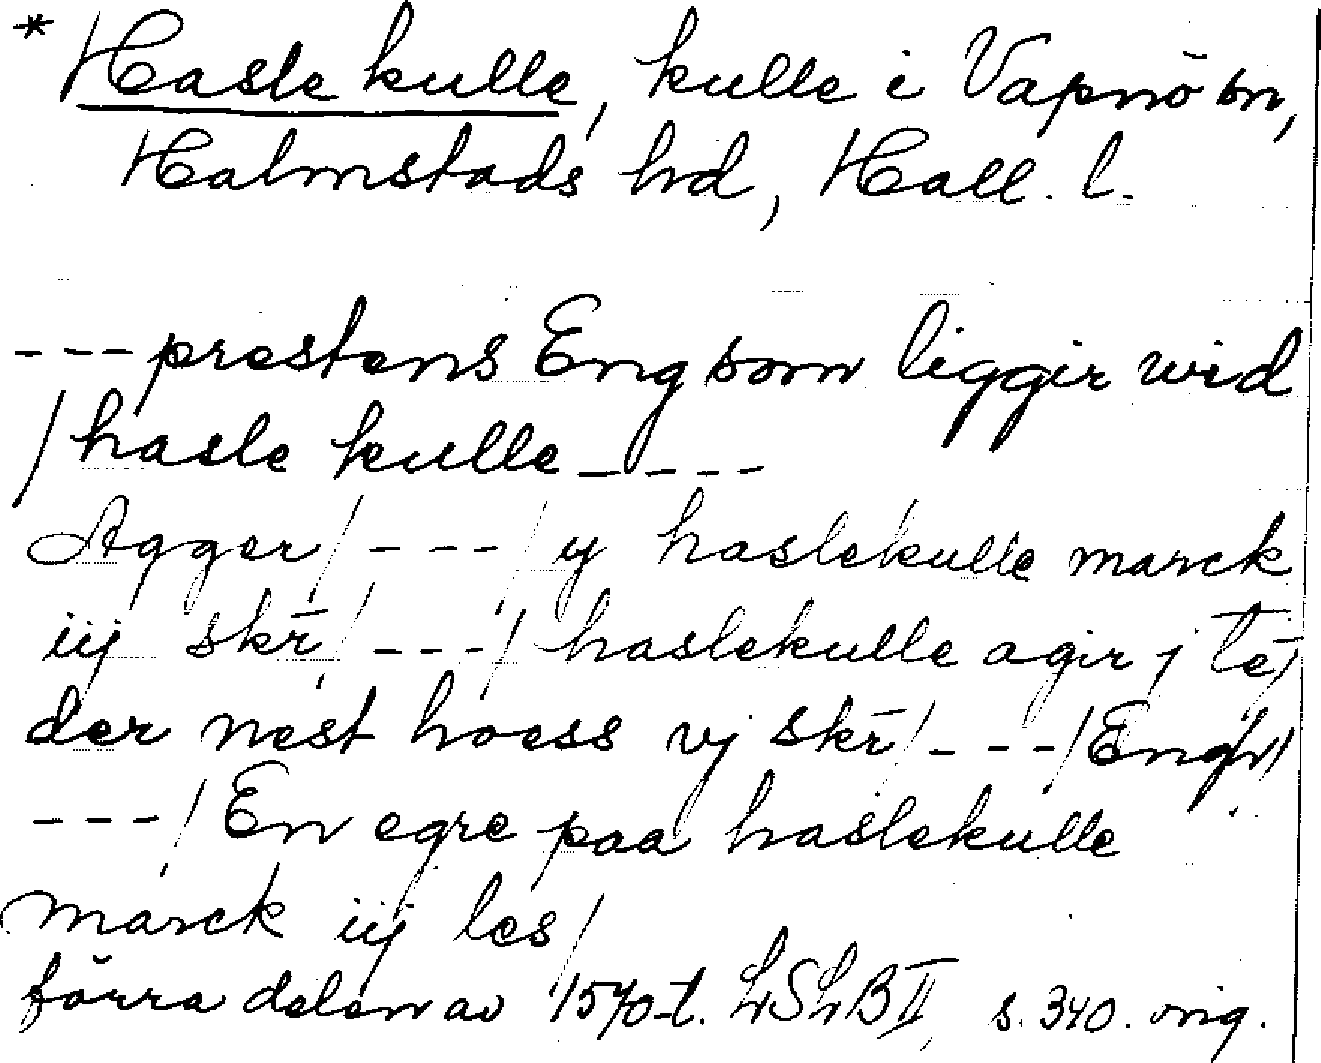 * Hasle kulle, kulle i Vapnö sn,
Halmstads hd, Hall. l.
--- prestens Eng som liggir wid
/ hasle kulle ----
Agger / --- / y haslekulle marck
iij skr̄ / --- / haslekulle agir j tē /
der nest hoess vj skr̄ / --- / Engh /
--- / En egre paa haslekulle
marck iij les /
förra delen av 1570-t. LSLB II, s. 340. orig.